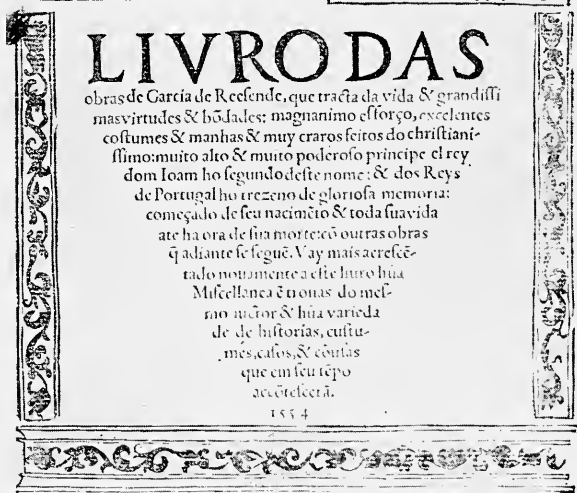 LIVRO DAS
obras de Garcia de Reesende, que tracta da vida & grandissi
mas virtudes & bõdades: magnanimo esforço, excelentes
costumes & manhas & muy craros feitos do christiani-
ssimo: muito alto & muito poderoso principe el rey
dom Ioam ho segundo deste nome: & dos Reys
de Portugal ho trezeno de gloriosa memoria:
começado de seu nacimẽto & toda sua vida
ate ha ora de sua morte: cõ outras obras
q̃ adiante se seguẽ. Vay mais acrescẽ-
tado nouamente a este liuro hũa
Miscellanea ẽ trouas do mes-
mo auctor & hũa varieda
de de historias, custu-
mes, casos, & cousas
que em seu tẽpo
accõtescerã.
1554